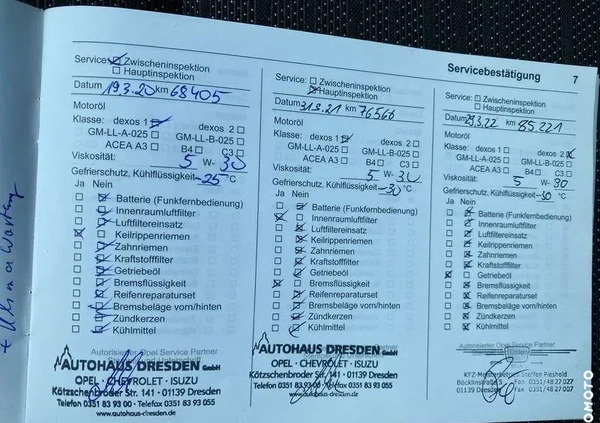 Servicebestätigung 7
Service: Zwischeninspektion
Hauptinspektion
Datum 19.3.20 km 68405
Motoröl
Klasse: dexos 1 dexos 2
GM-LL-A-025 GM-LL-B-025
ACEA A3 B4 C3
Viskosität: 5 W- 30
Gefrierschutz, Kühlflüssigkeit -25 °C
Ja Nein
Batterie (Funkfernbedienung)
Innenraumluftfilter
Luftfiltereinsatz
Keilrippenriemen
Zahnriemen
Kraftstofffilter
Getriebeöl
Bremsflüssigkeit
Reifenreparaturset
Bremsbeläge vorn/hinten
Zündkerzen
Kühlmittel
Autorisierter Opel Service Partner
AUTOHAUS DRESDEN GmbH
OPEL · CHEVROLET · ISUZU
Kötzschenbroder Str. 141 · 01139 Dresden
Telefon 0351 83 93 00 · Telefax 0351 83 93 055
www.autohaus-dresden.de
Service: Zwischeninspektion
Hauptinspektion
Datum 31.3.21 km 76566
Motoröl
Klasse: dexos 1 dexos 2
GM-LL-A-025 GM-LL-B-025
ACEA A3 B4 C3
Viskosität: 5 W- 30
Gefrierschutz, Kühlflüssigkeit -30 °C
Ja Nein
Batterie (Funkfernbedienung)
Innenraumluftfilter
Luftfiltereinsatz
Keilrippenriemen
Zahnriemen
Kraftstofffilter
Getriebeöl
Bremsflüssigkeit
Reifenreparaturset
Bremsbeläge vorn/hinten
Zündkerzen
Kühlmittel
AUTOHAUS DRESDEN GmbH
OPEL · CHEVROLET · ISUZU
Kötzschenbroder Str. 141 · 01139 Dresden
Telefon 0351 83 93 00 · Telefax 0351 83 93 055
www.autohaus-dresden.de
Service: Zwischeninspektion
Hauptinspektion
Datum 29.3.22 km 85221
Motoröl
Klasse: dexos 1 dexos 2
GM-LL-A-025 GM-LL-B-025
ACEA A3 B4 C3
Viskosität: 5 W- 30
Gefrierschutz, Kühlflüssigkeit -30 °C
Ja Nein
Batterie (Funkfernbedienung)
Innenraumluftfilter
Luftfiltereinsatz
Keilrippenriemen
Zahnriemen
Kraftstofffilter
Getriebeöl
Bremsflüssigkeit
Reifenreparaturset
Bremsbeläge vorn/hinten
Zündkerzen
Kühlmittel
Autorisierter Opel Service Partner
KFZ-Meisterbetrieb Steffen Pieshold
Böcklinstraße 5 Fon 0351/48 27 027
01139 Dresden Fax 0351/48 27 007